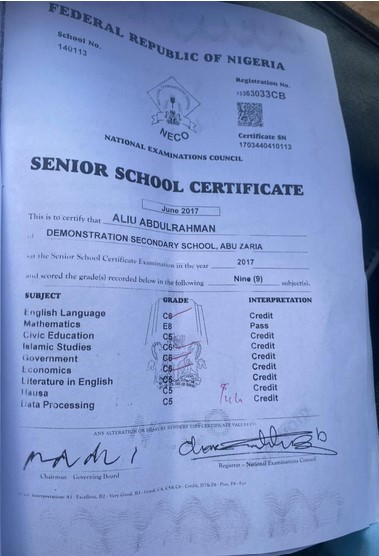 FEDERAL REPUBLIC OF NIGERIA
School No.
140113
Registration No.
63033CB
NECO
Certificate SN
1703440410113
NATIONAL EXAMINATIONS COUNCIL
SENIOR SCHOOL CERTIFICATE
June 2017
This is to certify that ALIU ABDULRAHMAN
of DEMONSTRATION SECONDARY SCHOOL, ABU ZARIA
sat the Senior School Certificate Examination in the year 2017
and scored the grade(s) recorded below in the following Nine (9) subject(s).
SUBJECT GRADE INTERPRETATION
English Language C6 Credit
Mathematics E8 Pass
Civic Education C5 Credit
Islamic Studies C6 Credit
Government Credit
Economics Credit
Literature in English Credit
Hausa C5 Credit
Data Processing C5 Credit
ANY ALTERATION OR ERASURE RENDERS THIS CERTIFICATE VALUELESS
Chairman Governing Board
Registrar - National Examinations Council
Interpretation: A1 - Excellent, B2 - Very Good, B3 - Good, C4, C5, C6 - Credit, D7, E8 - Pass, F9 - Fail